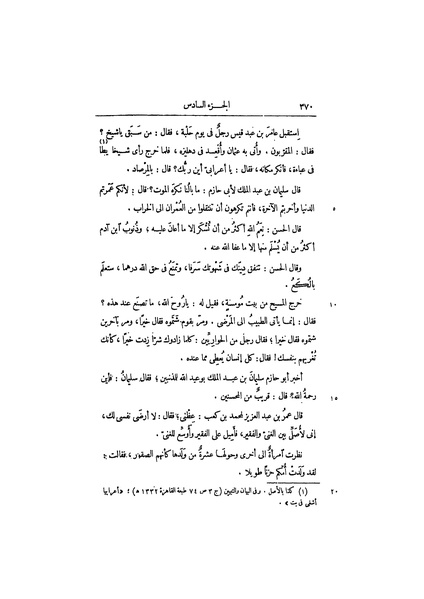 ٣٧٠ الجزء السادس
إستقبل عامرَ بن عبد قيس رجلٌ فى يوم حَلْبة ، فقال : من سَبَق ياشيخ ؟
فقال : المقرّبون . وأُتِى به عثمان وأُقْعِد فى دهليزه ، فلما خرج رأى شيخا بَطًّا (١)
فى عباءة ، فأنكر مكانه ، فقال : يا أعرابىّ أين ربّك؟ قال : بالمِرْصاد .
قال سليمان بن عبد الملك لأبى حازم : ما بالُنا نَكْرَه الموت؟ قال : لأنكم عَمَرتم
٥ الدنيا وأخربتم الآخرة، فأنتم تكرهون أن تنتقلوا من العُمْران الى الخراب .
قال الحسن : نِعَمُ اللهِ أكثرُ من أن تُشْكَر إلا ما أعان عليه ، وذُنوبُ ابن آدم
أكثرُ من أن يُسْلَم منها إلا ما عفا الله عنه .
وقال الحسن : تنفق دِينَك فى شهوتك سَرَفا، وتمنَعُ فى حق الله درهما، ستعلَم
يالُكَعُ .
١٠ خرج المسيح من بيت مُومِسةٍ، فقيل له : يارُوحَ الله، ما تصنَع عند هذه ؟
فقال : إنما يأتى الطبيبُ الى المَرْضَى . ومرّ بقوم شتَموه فقال خيرا، ومر بآخرين
شتموه فقال خيرا ؛ فقال رجل من الحواريِّين : كلما زادوك شرّا زِدتَ خيرا، كأنك
تُغْرِيهم بنفسك ! فقال: كل إنسان يُعطِى مما عنده .
أخبر أبو حازم سليمانَ بن عبد الملك بوعيد الله للمذنبين ؛ فقال سليمانُ : فأين
١٥ رحمةُ الله؟ قال : قريبٌ من المحسنين .
قال عمرُ بن عبد العزيز لمحمد بن كعب : عِظْنى؛ فقال : لا أرضَى نفسى لك،
إنى لأُصلِّى بين الغنىّ والفقير، فأميل على الفقير وأُوَسِّع للغنىّ .
نظرت امرأةٌ الى أخرى وحولها عشرةٌ من ولدها كأنهم الصقور، فقالت :
لقد ولَدتْ أُمُّكم حُزنًا طويلا .
٢٠ (١) كذا بالأصل . وفى البيان والتبيين (ج ٣ ص ٧٤ طبعة القاهرة ١٣٣٢ هـ) : «أعرابيا
أشغى فى بت» .